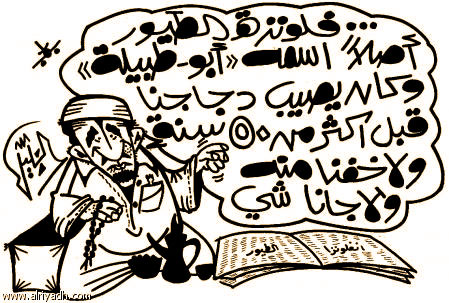 ... فلونزة الطيور
أصلاً اسمه «أبو-طبيلة»
وكان يصيب دجاجنا
قبل أكثر من ٥٠ سنة
ولا خفنا منه
ولا جانا شي
انفلونزا الطيور
www.alriyadh.com